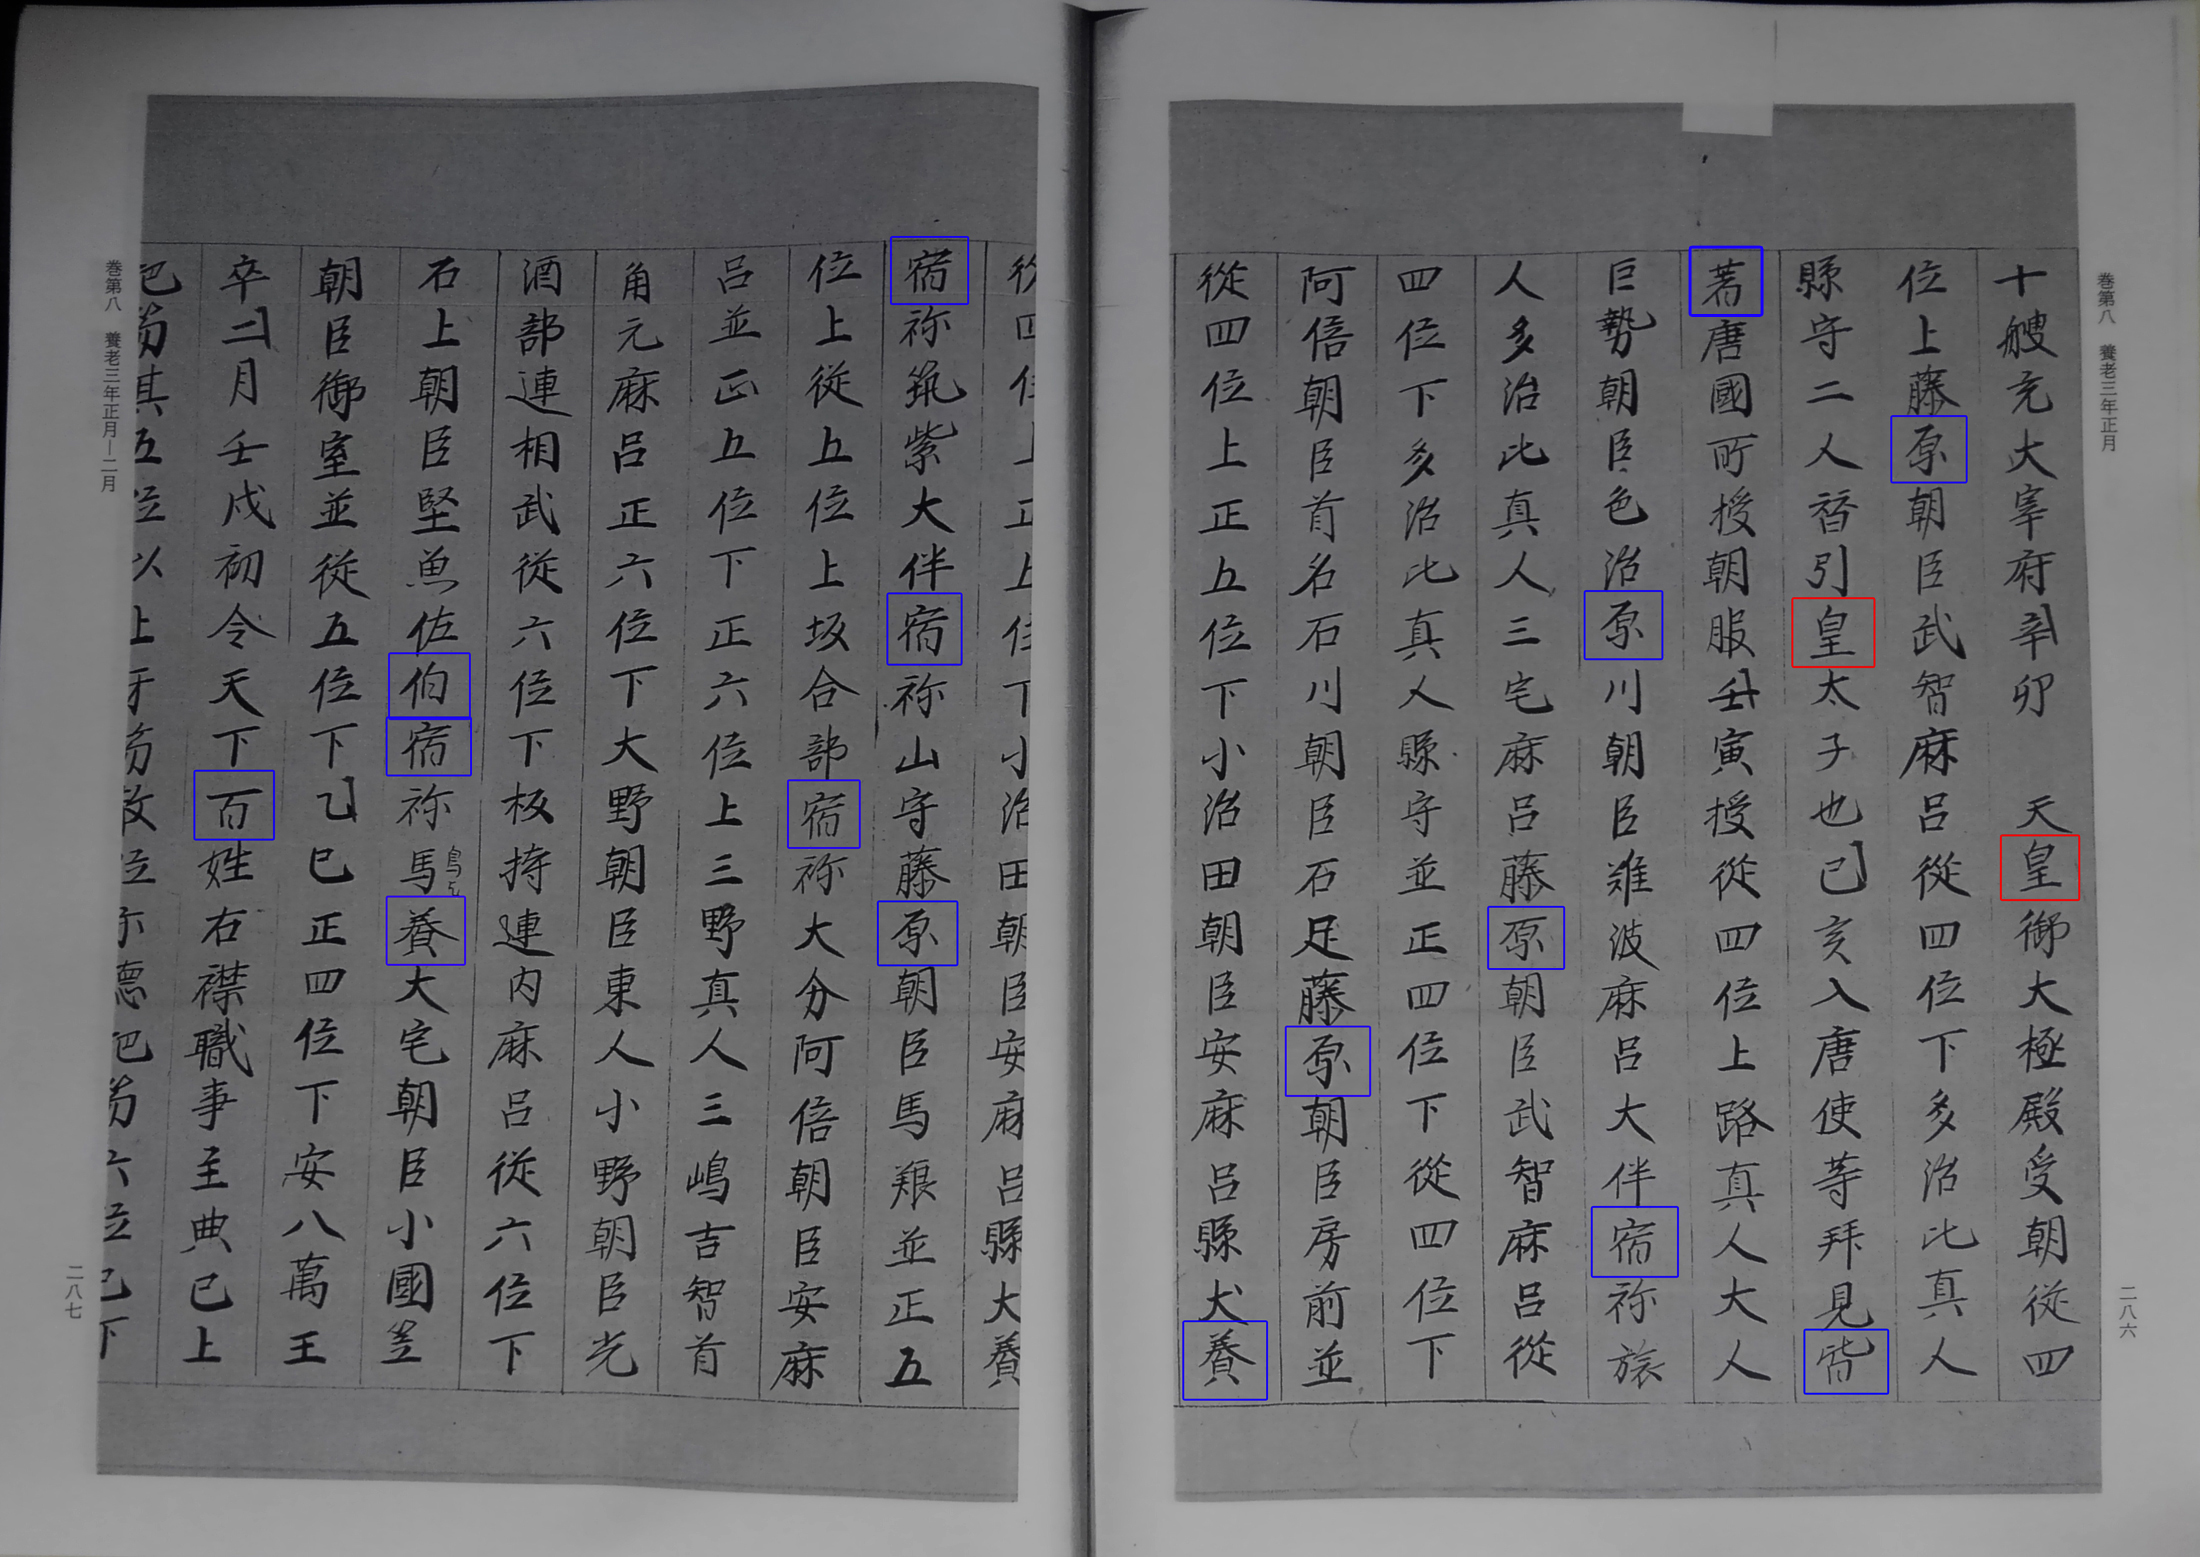 巻第八　養老三年正月
十艘充大宰府辛卯　天皇御大極殿受朝從四
位上藤原朝臣武智麻呂從四位下多治比真人
縣守二人賛引皇太子也己亥入唐使等拜見皆
著唐國所授朝服壬寅授從四位上路真人大人
巨勢朝臣邑治原川朝臣難波麻呂大伴宿祢旅
人多治比真人三宅麻呂藤原朝臣武智麻呂從
四位下多治比真人縣守並正四位下從四位下
阿倍朝臣首名石川朝臣石足藤原朝臣房前並
從四位上正五位下小治田朝臣安麻呂縣犬養
二八六
從四位上正五位下小治田朝臣安麻呂縣犬養
宿祢筑紫大伴宿祢山守藤原朝臣馬養並正五
位上從五位上坂合部宿祢大分阿倍朝臣安麻
呂並正五位下正六位上三野真人三嶋吉智首
角兄麻呂正六位下大野朝臣東人小野朝臣
酒部連相武從六位下板持連内麻呂從六位下
石上朝臣堅魚佐伯宿祢馬養大宅朝臣小國笠
朝臣御室並從五位下乙巳正四位下安八萬王
卒二月壬戌初令天下百姓右襟職事主典已上
把笏其五位以上牙笏散位亦聽把笏六位已下
巻第八　養老三年正月―二月
二八七